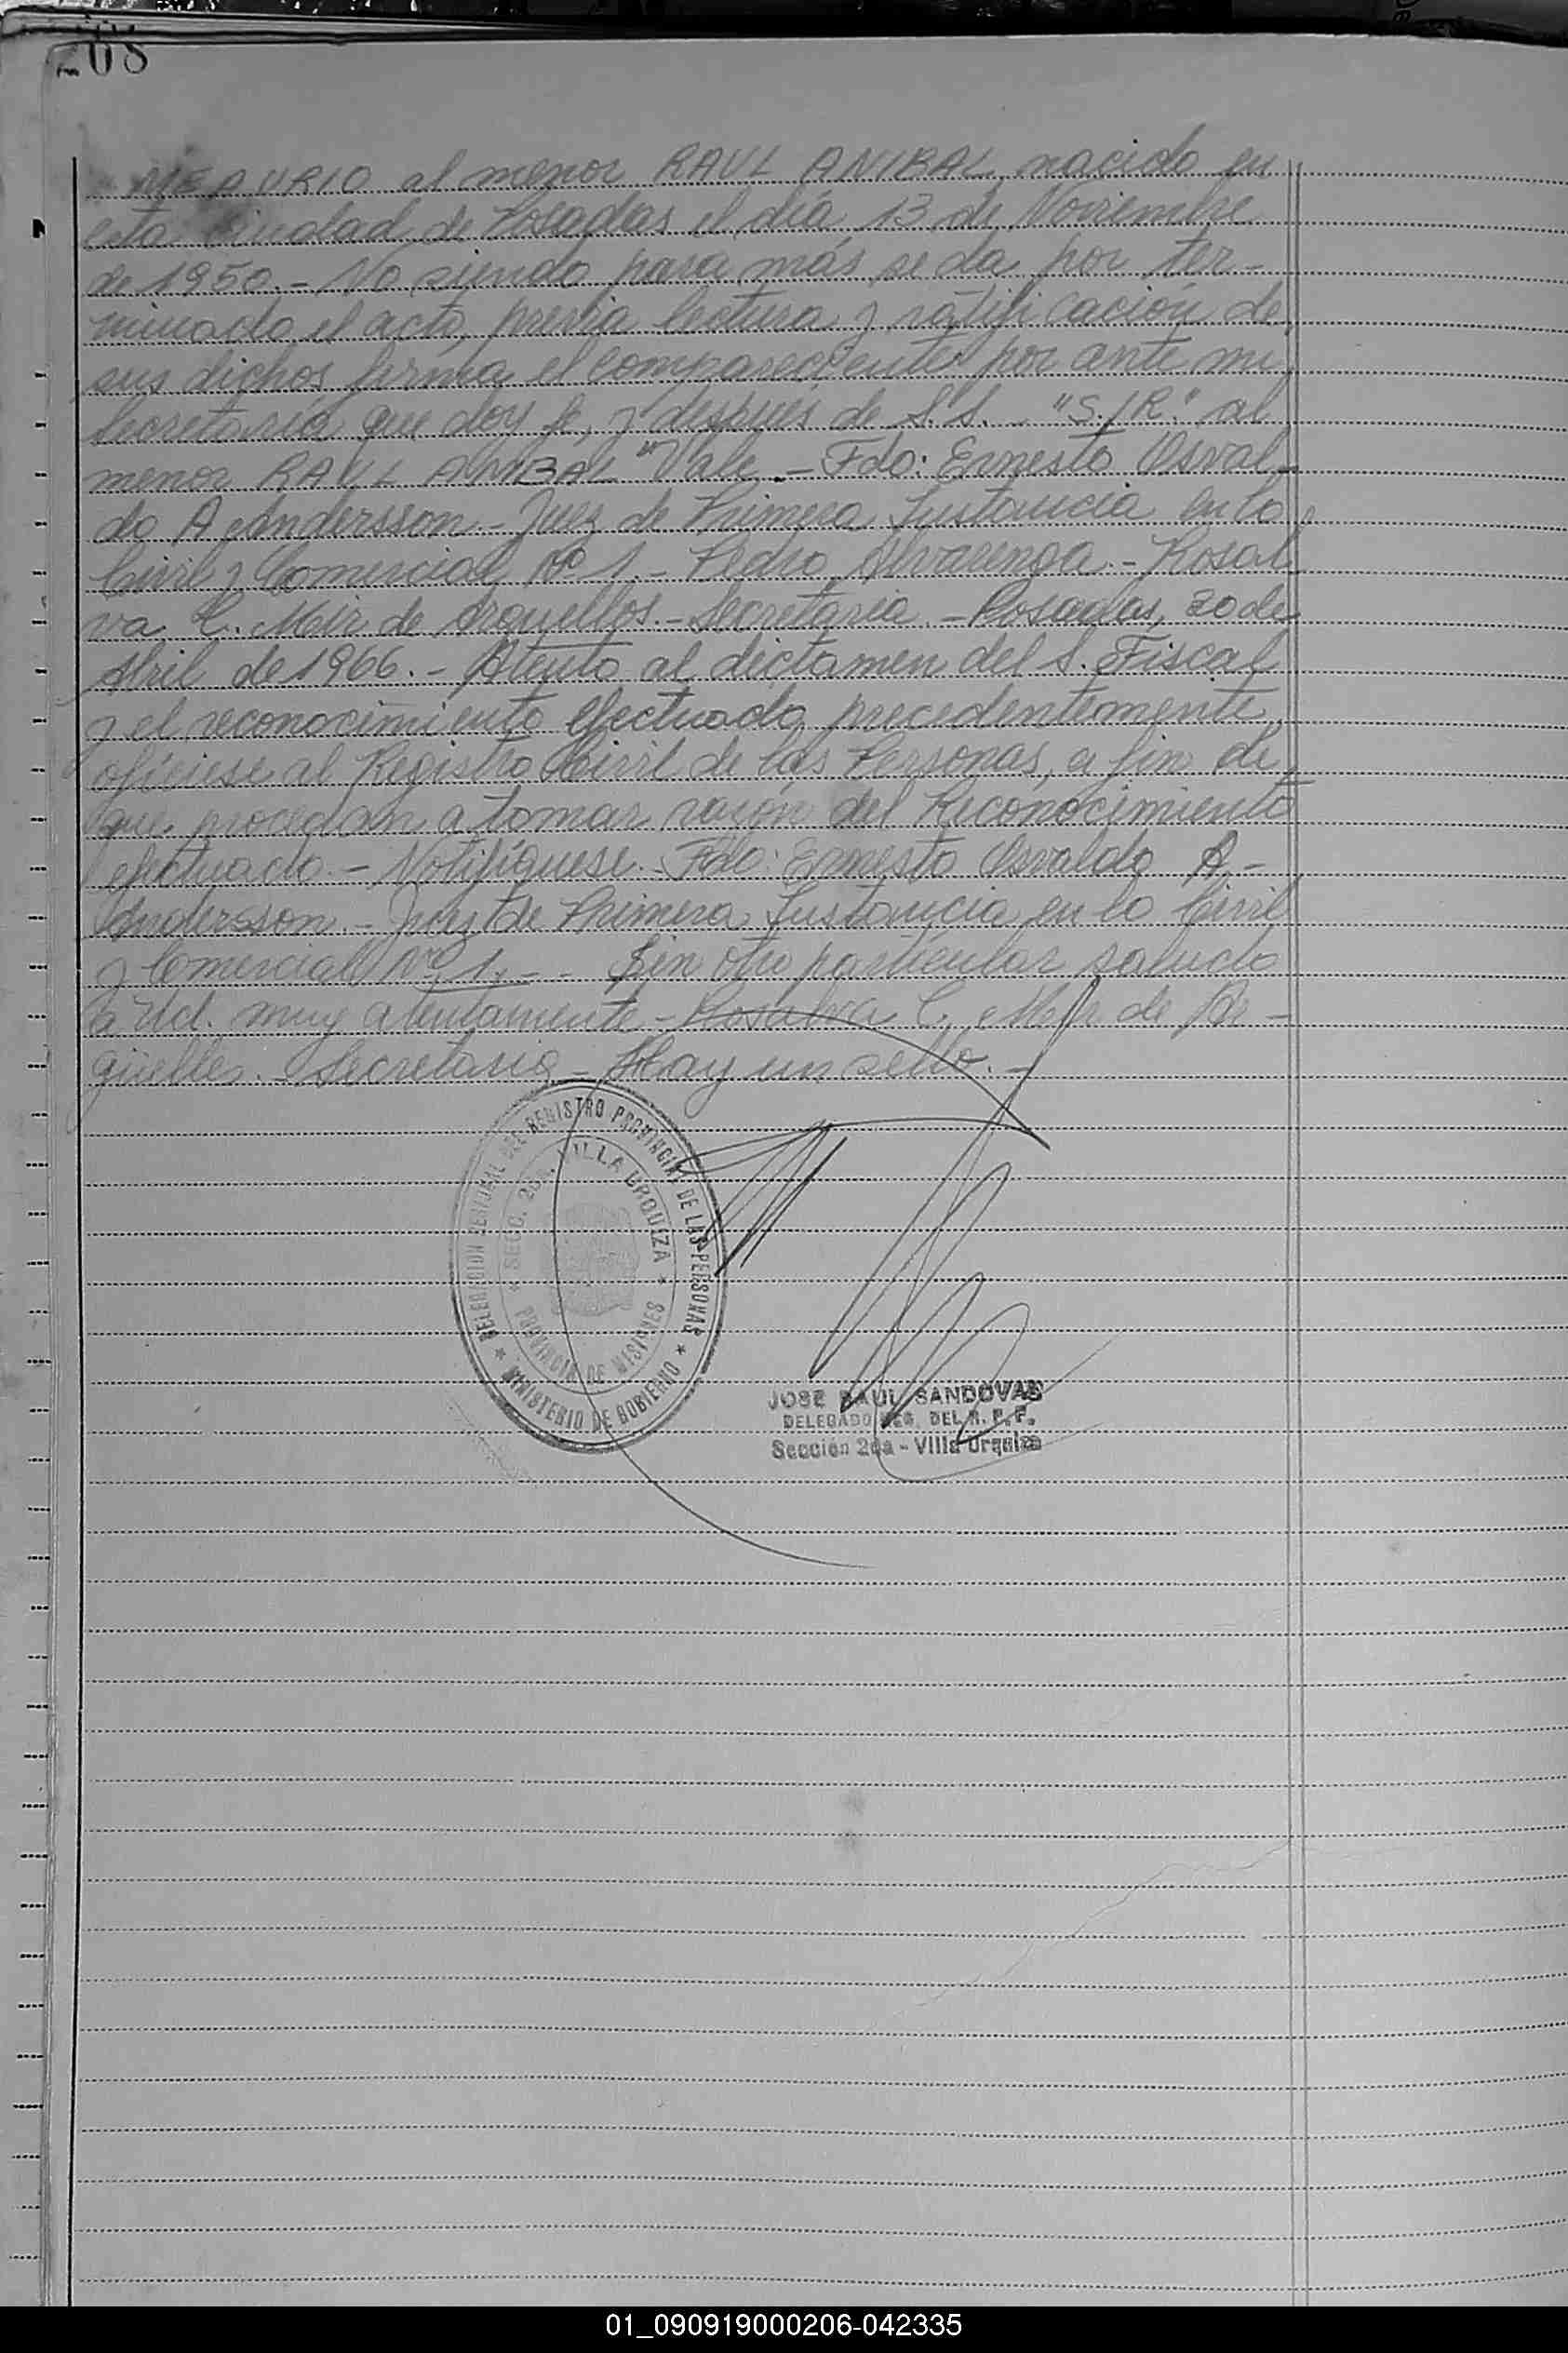 208
al menor RAUL ANIBAL nacido en
esta ciudad de Posadas el día 13 de Noviembre
de 1950.- No siendo para más se da por ter-
minado el acto, previa lectura y ratificación de
sus dichos firma el compareciente por ante mi
Secretaria que doy fe, y después de S.S. - "S./R." al
menor RAUL ANIBAL "Vale.- Fdo: Ernesto Osval-
do A Andersson.- Juez de Primera Instancia en lo
Civil y Comercial Nº 1.- Pedro Alvarenga.- Rosal
va C. Meir de Arguellos.- Secretaria.- Posadas, 20 de
Abril de 1966.- Atento al dictamen del S. Fiscal
y el reconocimiento efectuado precedentemente,
ofíciese al Registro Civil de las Personas, a fin de
que procedan a tomar razón del Reconocimiento
efectuado.- Notifíquese.- Fdo: Ernesto Osvaldo A-
Andersson.- Juez de Primera Instancia en lo Civil
y Comercial Nº 1.- - Sin otro particular saludo
a Ud. muy atentamente - Rosalva C. Meir de Ar-
guelles.- Secretaria - Hay un sello.-
DELEGACION REGIONAL DEL REGISTRO PROVINCIAL DE LAS PERSONAS
* MINISTERIO DE GOBIERNO *
* SEC. 2da. VILLA URQUIZA *
PROVINCIA DE MISIONES
JOSE RAUL SANDOVAS
DELEGADO REG. DEL R. P. P.
Sección 2da - Villa Urquiza
01_090919000206-042335